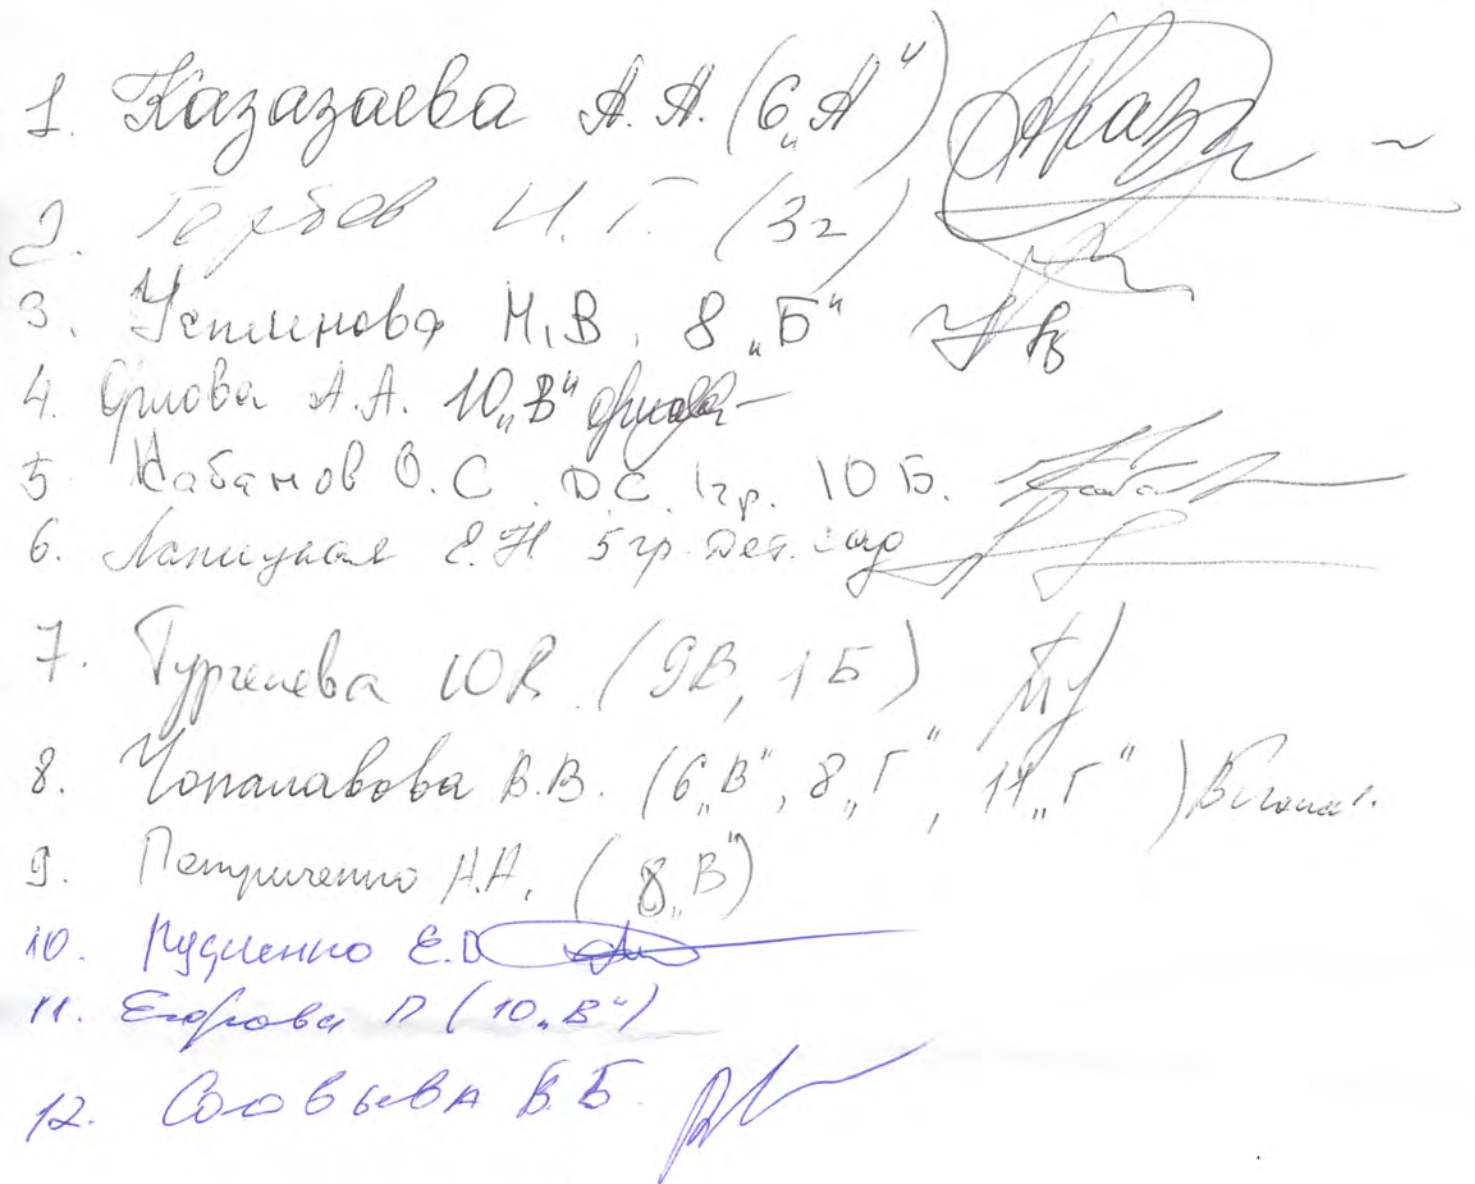 1. Казазаева А.А. (6„А“)
2. Гербов И.Г. (3г)
3. Устинова Н.В. 8„Б“
4. Орлова А.А. 10„В“
5. Кабанов О.С. Д.С. 1гр. 10 Б.
6. Лапицкая Е.Н. 5 гр. Дет. сад
7. Тургенева Ю.В. (9В, 1Б)
8. Чопалавова В.В. (6„В“, 8„Г“, 11„Г“)
9. Петриченко А.А. (8„В“)
10. Руденко Е.В
11. Егорова П (10„В“)
12. Соловьева В.Б.